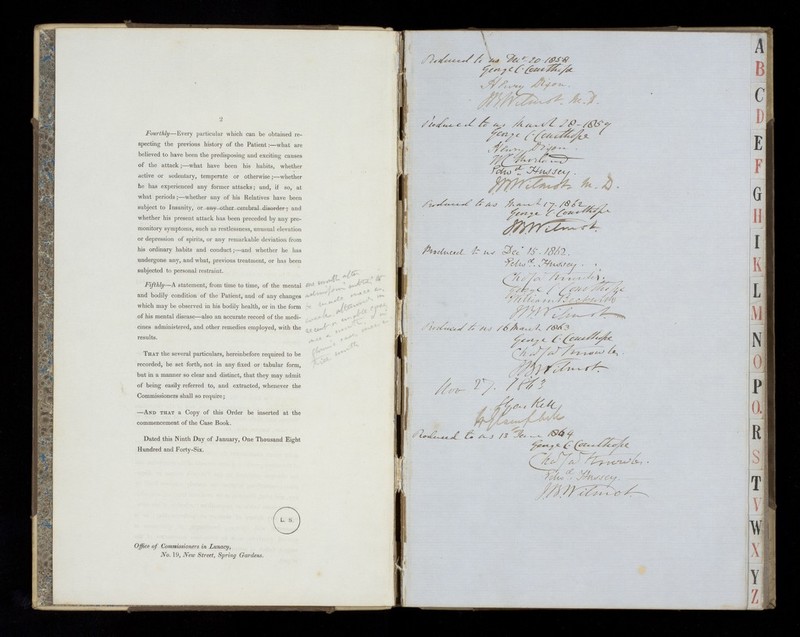 2
Fourthly—Every particular which can be obtained re-
specting the previous history of the Patient:—what are
believed to have been the predisposing and exciting causes
of the attack;—what have been his habits, whether
active or sedentary, temperate or otherwise;—whether
he has experienced any former attacks; and, if so, at
what periods;—whether any of his Relatives have been
subject to Insanity, or any other cerebral disorder; and
whether his present attack has been preceded by any pre-
monitory symptoms, such as restlessness, unusual elevation
or depression of spirits, or any remarkable deviation from
his ordinary habits and conduct;—and whether he has
undergone any, and what, previous treatment, or has been
subjected to personal restraint.
Fifthly—A statement, from time to time, of the mental
and bodily condition of the Patient, and of any changes
which may be observed in his bodily health, or in the form
of his mental disease—also an accurate record of the medi-
cines administered, and other remedies employed, with the
results.
one month after
THAT the several particulars, hereinbefore required to be
recorded, be set forth, not in any fixed or tabular form,
but in a manner so clear and distinct, that they may admit
of being easily referred to, and extracted, whenever the
Commissioners shall so require;
—AND THAT a Copy of this Order be inserted at the
commencement of the Case Book.
Dated this Ninth Day of January, One Thousand Eight
Hundred and Forty-Six.
L. S.
Office of Commissioners in Lunacy,
No. 19, New Street, Spring Gardens.
Produced to us Decr 20 1858
George C Courthope
Henry Dixon
JB Wilmot M.D.
Produced to us March 28-1859
George C Courthope
Henry Dixon
Edwd Hussey.
JB Wilmot M.D.
Produced to us March 17. 1862
George C Courthope
JB Wilmot
Produced to us Dec 15-1862.
Edwd Hussey.
George C Courthope
JB Wilmot
Produced to us 16 March 1863
George C Courthope
JB Wilmot
Nov 27. 1863
Produced to us 13 1864
George C Courthope
Edwd Hussey.
JB Wilmot
A
B
C
D
E
F
G
H
I
K
L
M
N
O
P
Q.
R
S
T
V
W
X
Y
Z